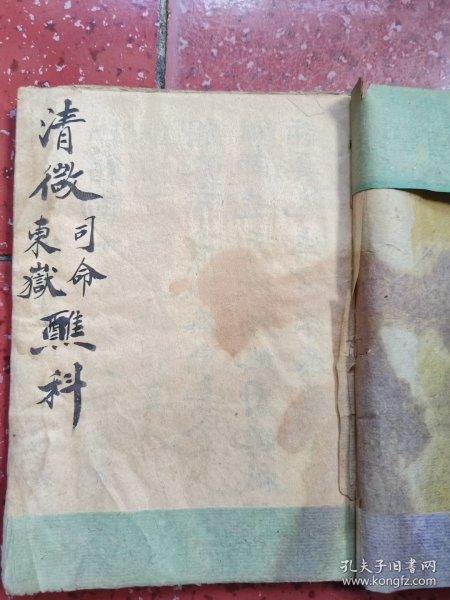 清微司命東嶽醮科
孔夫子旧书网
www.kongfz.com